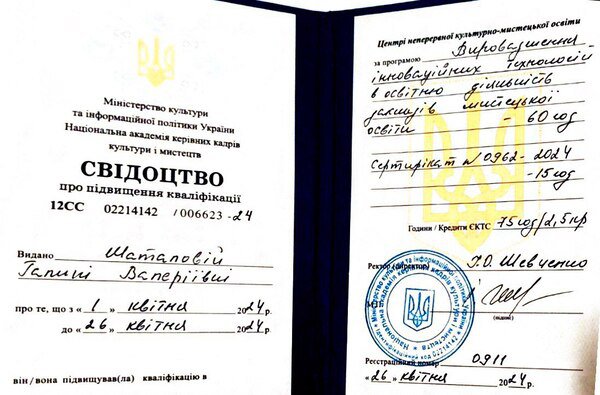 Міністерство культури
та інформаційної політики України
Національна академія керівних кадрів
культури і мистецтв
СВІДОЦТВО
про підвищення кваліфікації
12СС 02214142 / 006623 - 24
Видано Шаталовій
Галині Валеріївні
про те, що з « 1 » квітня 2024 р.
до « 26 » квітня 2024 р.
він/вона підвищував(ла) кваліфікацію в
Центрі неперервної культурно-мистецької освіти
за програмою Впровадження
інноваційних технологій
в освітню дільність
закладів мистецької
освіти - 60 год
Сертифікат № 0962 - 2024
- 15 год
Години / Кредити ЄКТС 75 год/2,5 кр
Ректор (директор) Ю. Шевченко
(підпис)
Реєстраційний номер 0911
« 26 » квітня 2024 р.